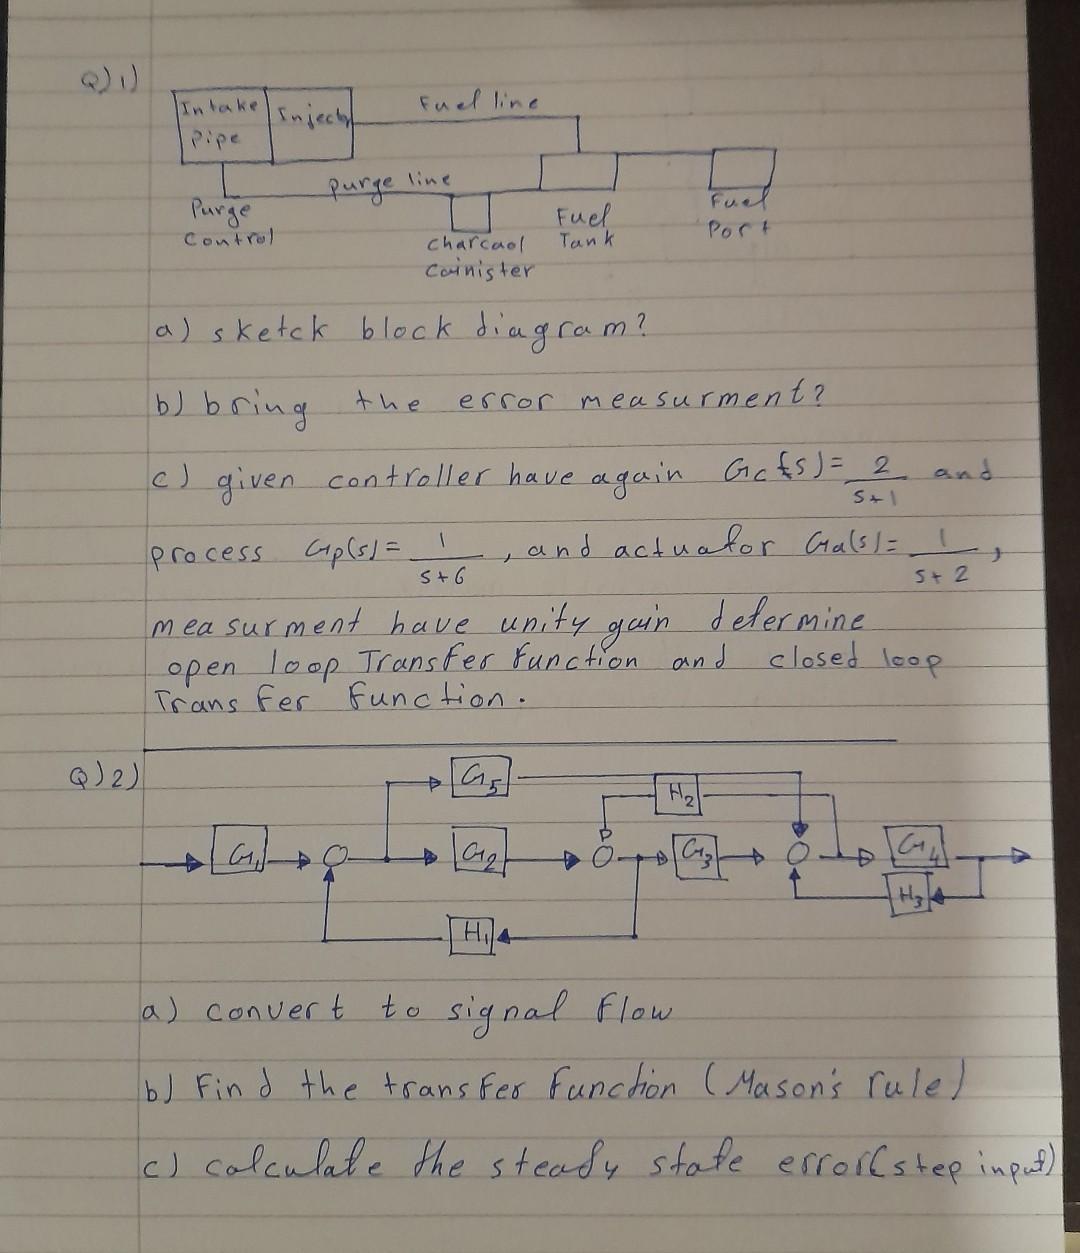 Q) 1)
Intake Injector Fuel line
Pipe
purge line
Purge Fuel Fuel
Control Charcaol Tank Port
Cainister
a) sketck block diagram?
b) bring the error measurment?
c) given controller have again Gc(s) = 2/(s+1) and
process Gp(s) = 1/(s+6), and actuator Ga(s) = 1/(s+2),
measurment have unity gain determine
open loop Transfer function and closed loop
Transfer function.
Q) 2)
G5
H2
G1 G2 G3 G4
H3
H1
a) convert to signal flow
b) Find the transfer function (Mason's rule)
c) calculate the steady state error (step input)